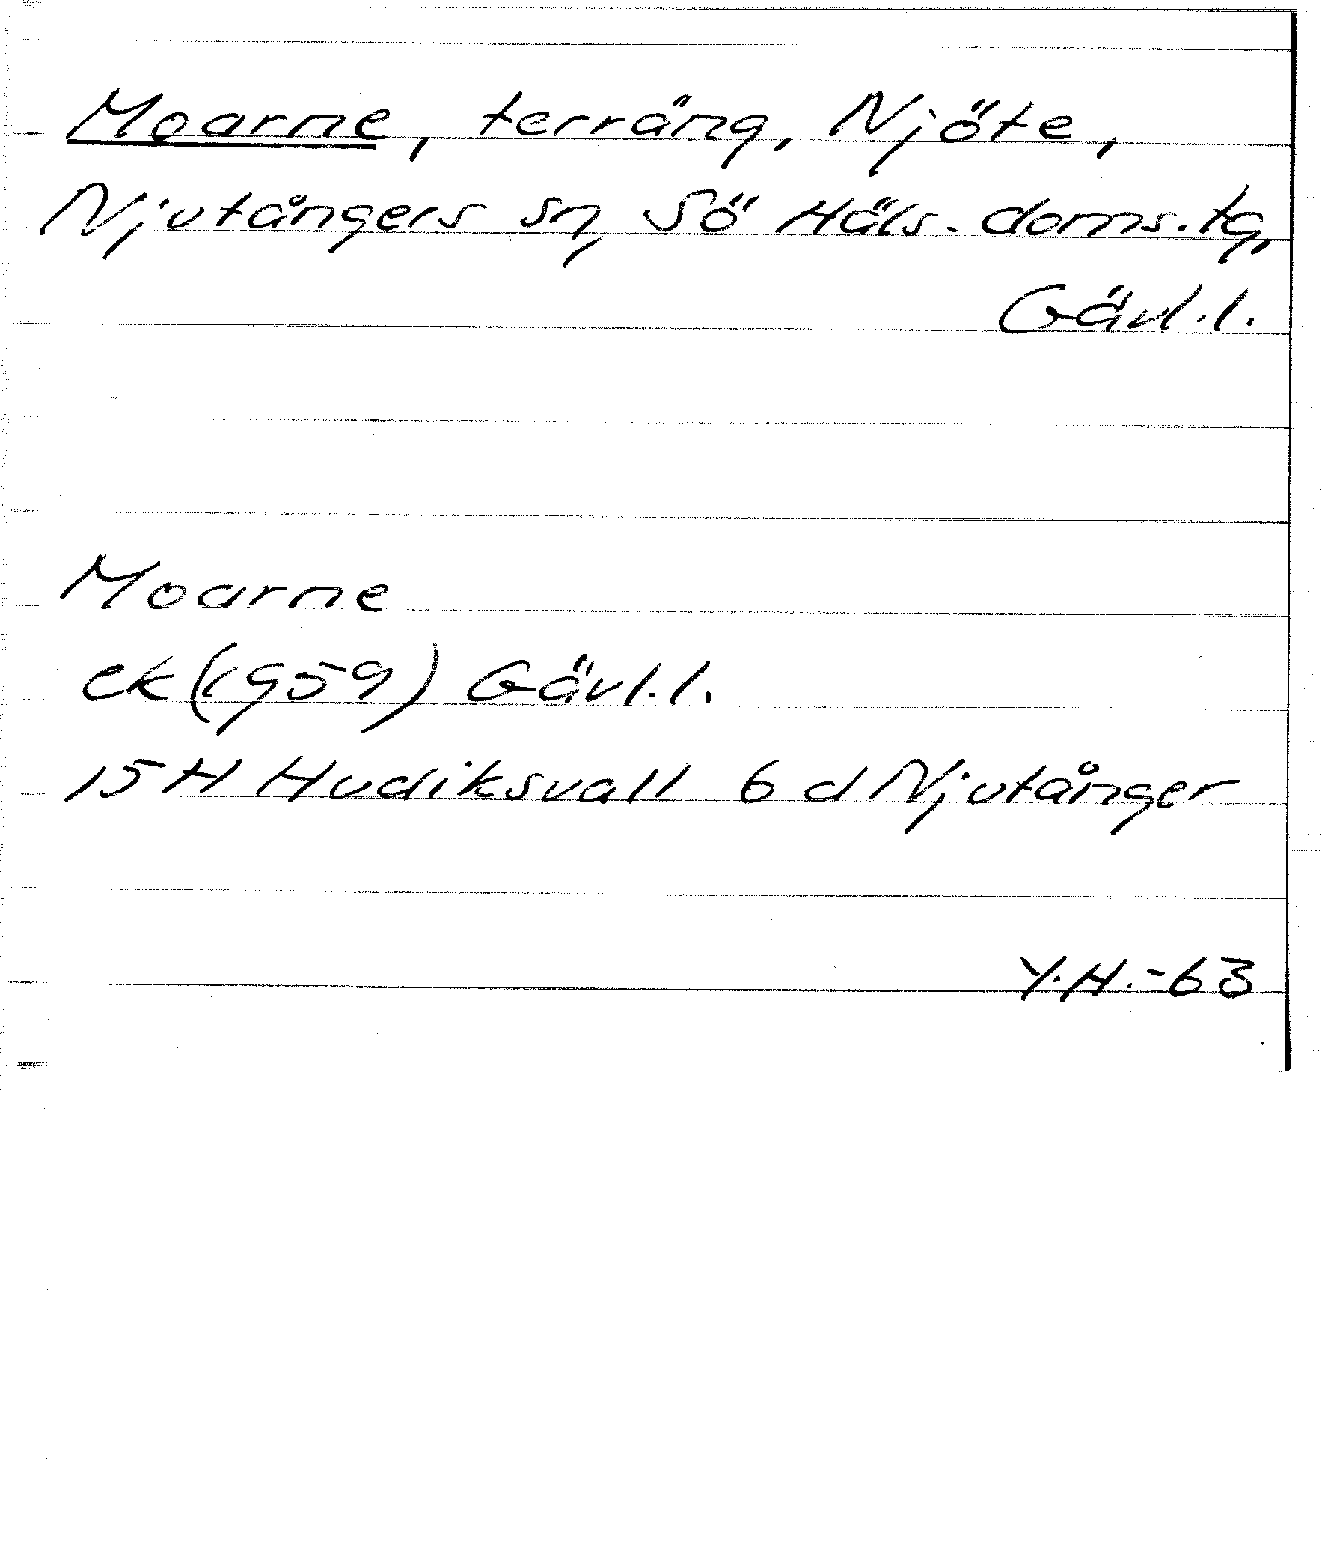 Moarne, terräng, Njöte,
Njutångers sn, Sö Häls. doms. tg,
Gävl. l.
Moarne
ek (1959) Gävl. l.
15 H Hudiksvall 6 d Njutånger
Y.H. -63